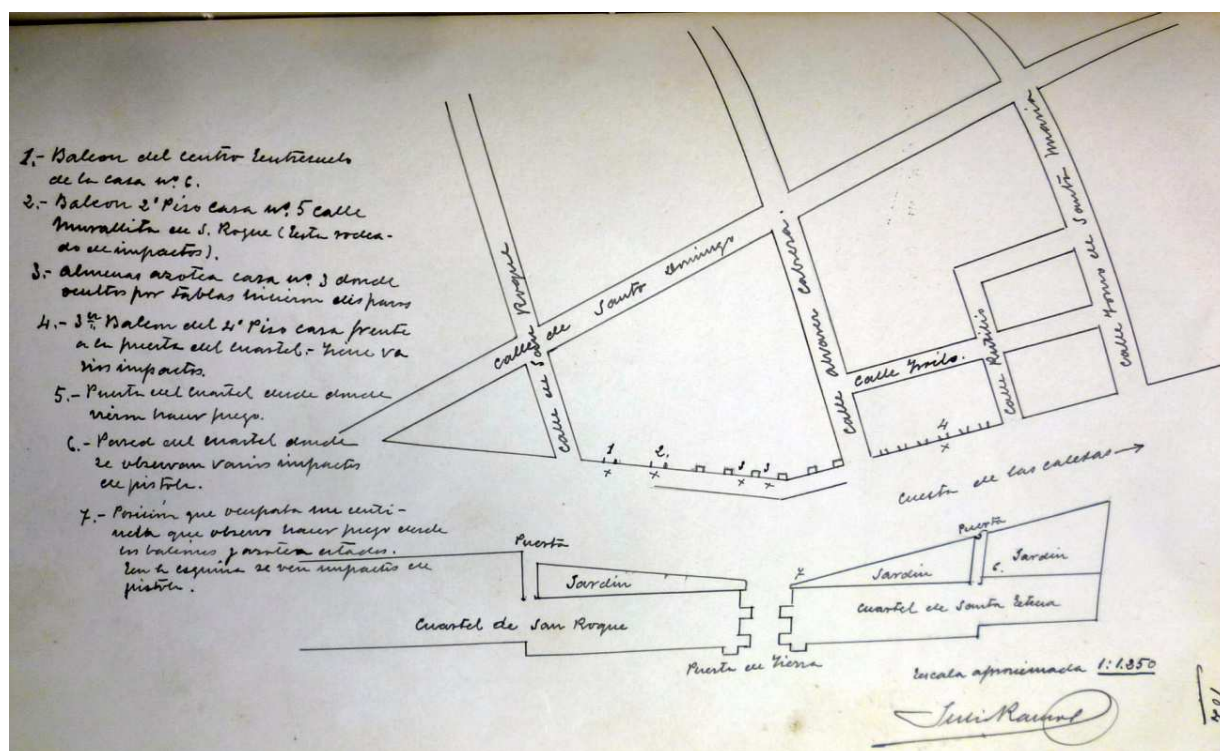 1.- Balcon del centro Entresuelo
de la casa nº 6.
2.- Balcon 2º Piso casa nº 5 calle
Murallita de S. Roque (Esta rodea-
do de impactos).
3.- Almenas azotea casa nº 3 donde
ocultos por tablas hicieron disparos
4.- 3er Balcon del 2º Piso casa frente
a la puerta del cuartel.- Tiene va
rios impactos.
5.- Puerta del cuartel desde donde
vieron hacer fuego.
6.- Pared del cuartel donde
se observan varios impactos
de pistola.
7.- Posición que ocupaba un centi-
nela que observo hacer fuego desde
los balcones y azotea citados.
En la esquina se ven impactos de
pistola.
Calle de San Roque
Calle de Santo Domingo
Calle Alvaer Cabrera.
Calle Troilo.
Calle Rutilio
Calle Torno de Santa Maria
1
2.
3
3
4
Cuesta de las Calesas
Puerta
Jardin
Cuartel de San Roque
7
Puerta
Jardin
6.
Jardin
Cuartel de Santa Elena
Puerta de Tierra
Escala aproximada 1:1.250